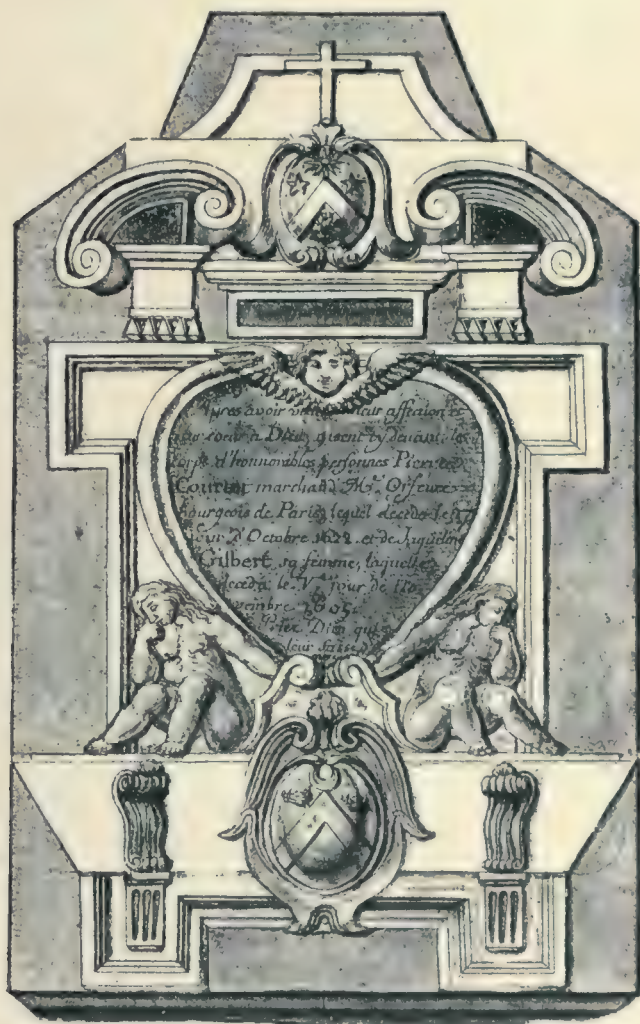 Apres avoir leur affection et
leur coeur a Dieu gisent cy devant, les
corps d'honnorables personnes Pierre
Courtet marchand Mr. Orfeure
bourgeois de Paris, lequel deceda le
jour d'Octobre 1622. et de Jaqueline
Gilbert sa femme, laquelle
deceda le V jour de No
vembre 1605.
Priez Dieu qu'il
leur fasse